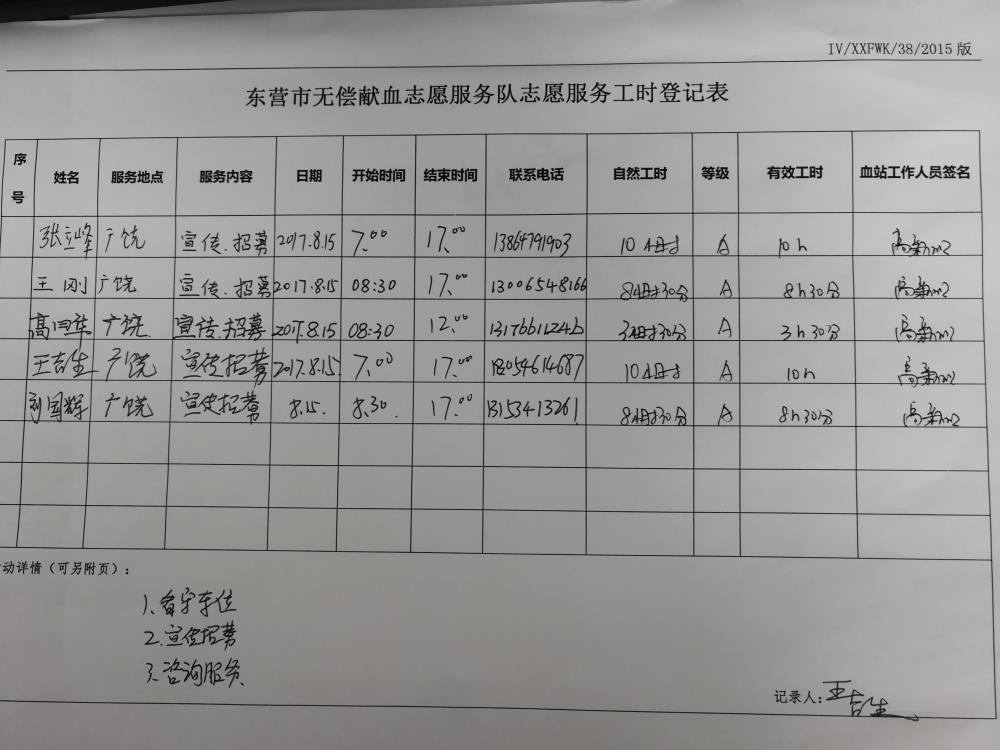 IV/XXFWK/38/2015 版
东营市无偿献血志愿服务队志愿服务工时登记表
序号 姓名 服务地点 服务内容 日期 开始时间 结束时间 联系电话 自然工时 等级 有效工时 血站工作人员签名
张立峰 广饶 宣传.招募 2017.8.15 7.00 17.00 13864791903 10小时 A 10h
王刚 广饶 宣传.招募 2017.8.15 08:30 17.00 13006548166 8小时30分 A 8h30分
广饶 宣传.招募 2017.8.15 08:30 12.00 13176611246 3小时30分 A 3h30分
王吉生 广饶 宣传招募 2017.8.15 7.00 17.00 18054614687 10小时 A 10h
刘国辉 广饶 宣传招募 8.15. 8.30. 17.00 13153413261 8小时30分 A 8h30分
动详情（可另附页）：
1、看守车位
2.宣传招募
3.咨询服务
记录人：王吉生